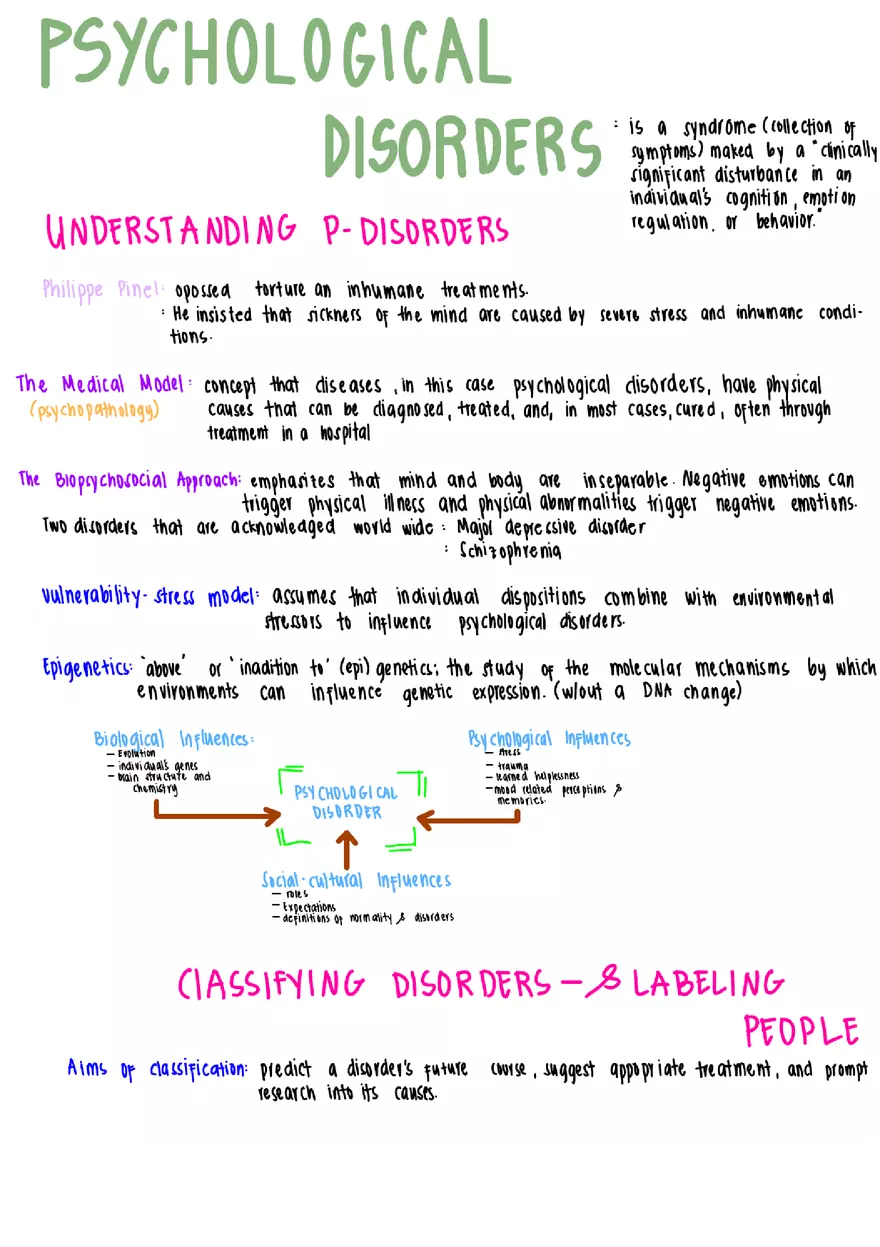 PSYCHOLOGICAL
DISORDERS
: is a syndrome (collection of
symptoms) maked by a "clinically
significant disturbance in an
individual's cognition, emotion
regulation, or behavior."
UNDERSTANDING P-DISORDERS
Philippe Pinel: opossed torture an inhumane treatments.
: He insisted that sickners of the mind are caused by severe stress and inhumane condi-
tions.
The Medical Model: concept that diseases, in this case psychological disorders, have physical
(psychopathology) causes that can be diagnosed, treated, and, in most cases, cured, often through
treatment in a hospital
The Biopsychosocial Approach: emphasites that mind and body are inseparable. Negative emotions can
trigger physical illness and physical abnormalities trigger negative emotions.
Two disorders that are acknowledged world wide: Major depressive disorder
: Schizophrenia
Vulnerability-stress model: assumes that individual dispositions combine with environmental
stressors to influence psychological disorders.
Epigenetics: "above" or 'inadition to' (epi) genetics; the study of the molecular mechanisms by which
environments can influence genetic expression. (w/out a DNA change)
Biological Influences:
- Evolution
- individual's genes
- brain structure and
chemistry
Psychological Influences
- stress
- trauma
- learned helplessness
- mood related perceptions &
memories.
PSYCHOLOGICAL
DISORDER
Social-cultural Influences
- roles
- Expectations
- definitions of normality & disorders
ClASSIFYING DISORDERS - & LABELING
PEOPLE
Aims of classification: predict a disorder's future course, suggest appopriate treatment, and prompt
research into its causes.